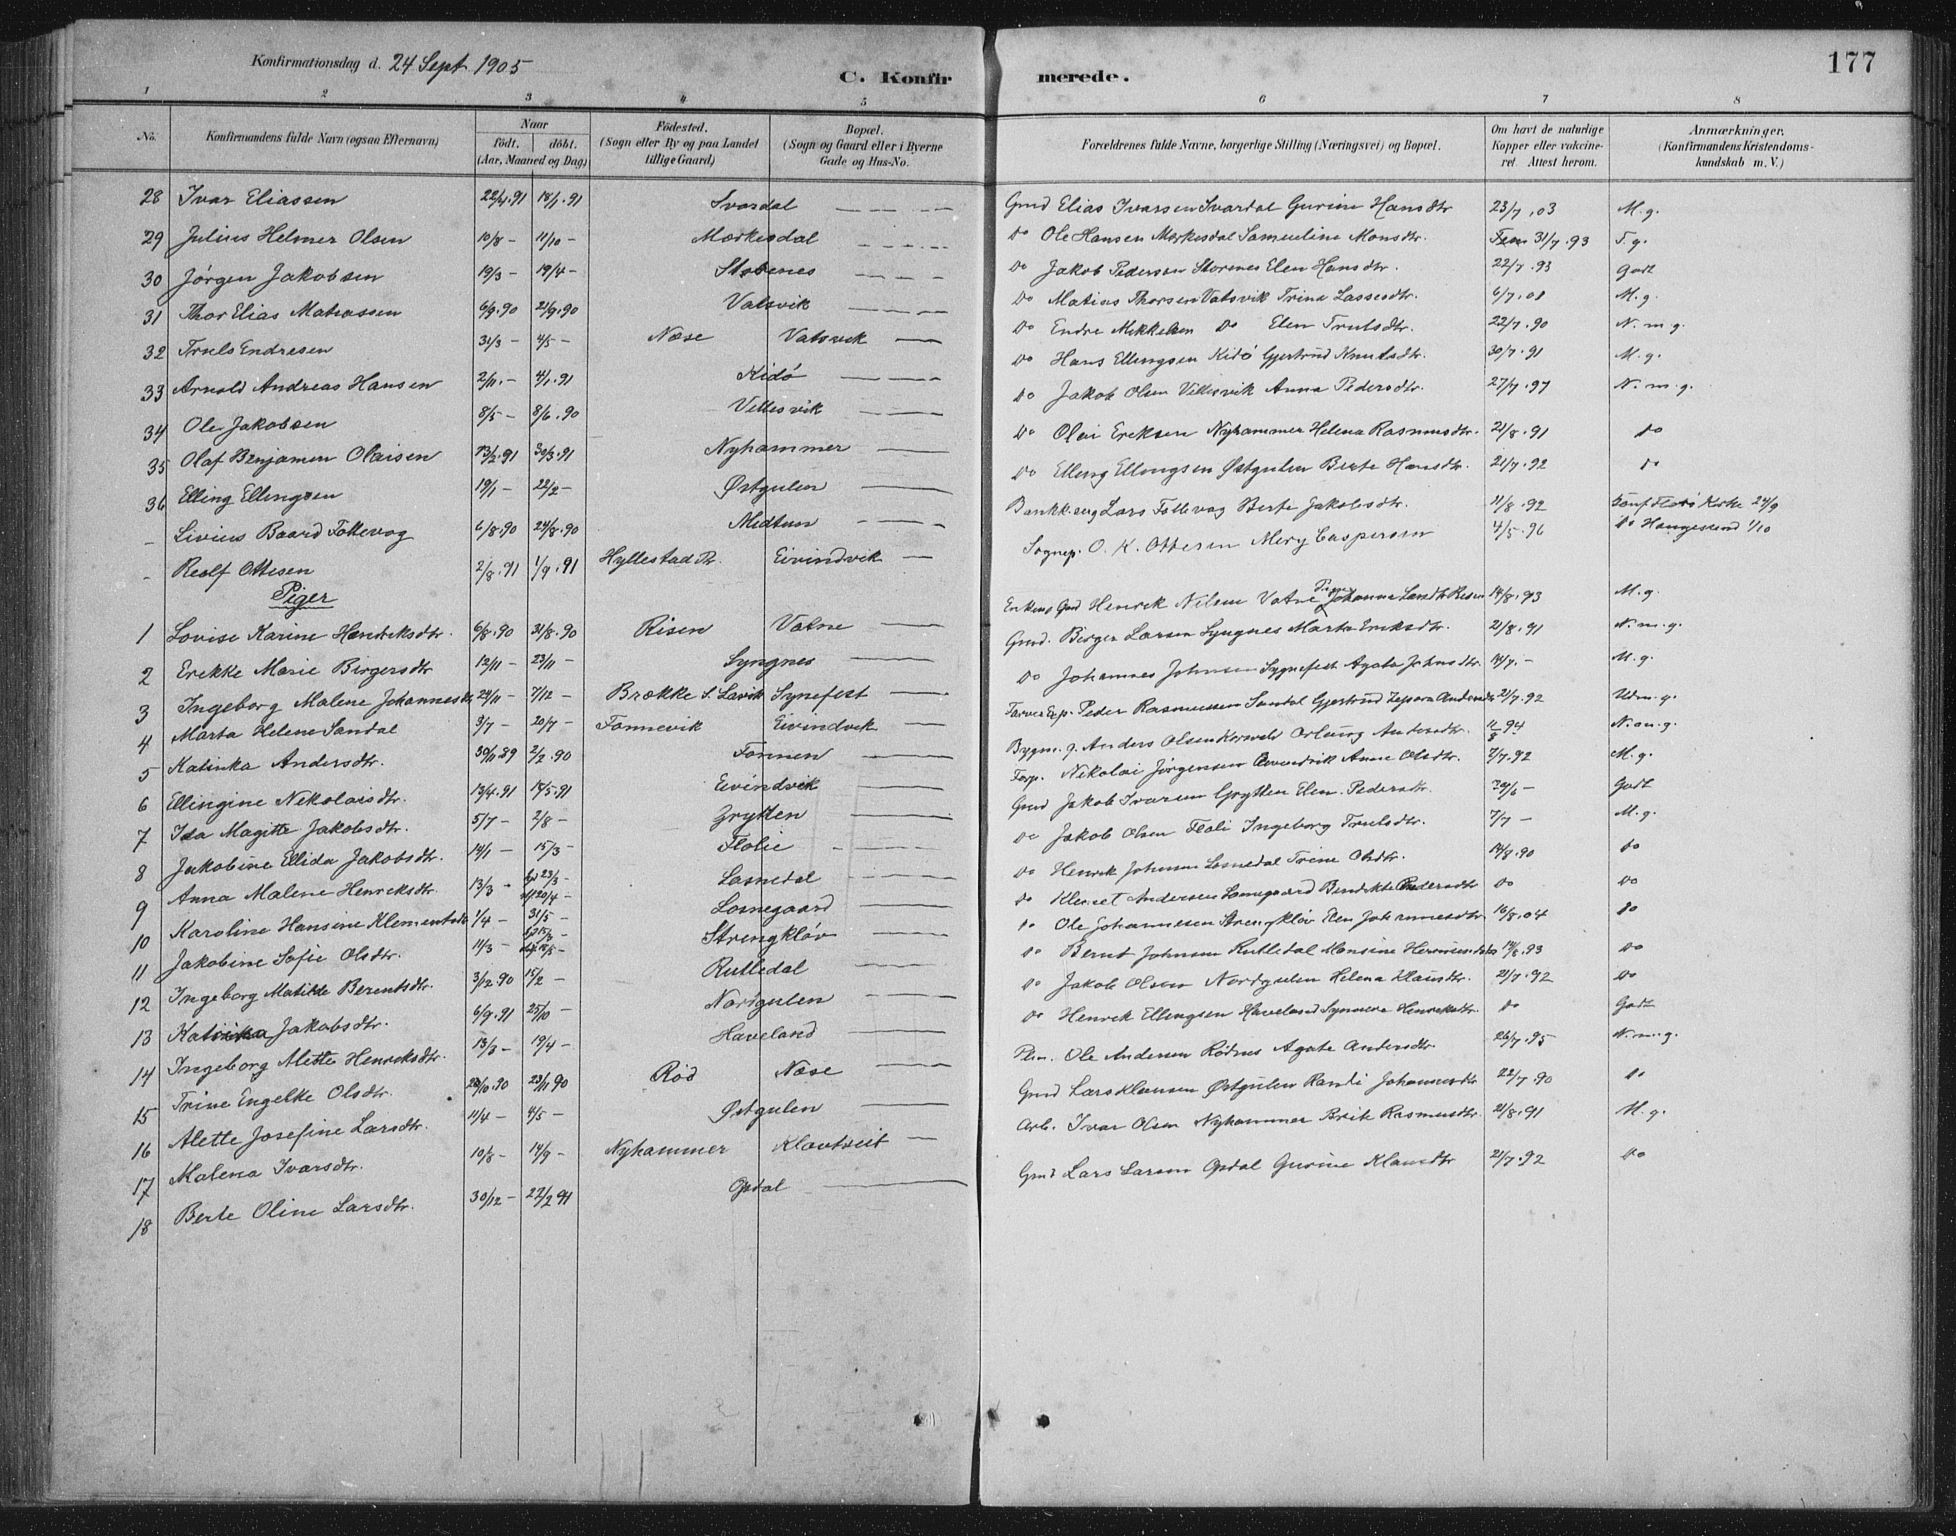 Konfirmationsdag d. 24 Sept. 1905 C. Konfirmerede. 177
1 2 3 4 5 6 7 8
No. Konfirmandens fulde Navn (ogsaa Efternavn) Naar født. døbt. (Aar, Maaned og Dag) Fødested. (Sogn eller By og paa Landet tillige Gaard) Bopæl. (Sogn og Gaard eller i Byerne Gade og Hus-No. Forældrenes fulde Navne, borgerlige Stilling (Næringsvei) og Bopæl. Om havt de naturlige Kopper eller vakcineret. Attest herom. Anmærkninger. (Konfirmandens Kristendomskundskab m. V.)
28 Ivar Eliassen 22/4.91 18/1.91 Svardal Gmd Elias Ivarsen Svardal Gurine Hansdtr 23/7.03 M.g.
29 Julius Helmer Olsen 10/8 – 11/10 – Mærkesdal do Ole Hansen Mørkesdal Samueline Monsdtr. 31/7.93 T.g.
30 Jørgen Jakobsen 19/3 – 19/4 – Stobenes do Jakob Pedersen Storenes Elen Hansdtr. 22/7.93 Godt
31 Thor Elias Matiassen 6/9.90 21/9.90 Vatsvik do Matias Thorsen Vatsvik Trina Lassesdtr. 6/7.01 M.g.
32 Truls Endresen 31/3 – 4/5 – Næse Vatsvik do Endre Mikkelsen do Elen Trulsdtr. 22/7.90 N.m.g.
33 Arnold Andreas Hansen 2/11. – 4/1.91 Kidø do Hans Ellingsen Kidø Gjertrud Knutsdtr. 30/7.91 M.g.
34 Ole Jakobsen 8/5 – 8/6.90 Villesvik do Jakob Olsen Villesvik Anna Pedersdtr. 27/7.97 N.m.g.
35 Olaf Benjamen Olaisen 13/2.91 30/3.91 Nyhammer do Olai Eriksen Nyhammer Helena Rasmusdtr. 21/8.91 do
36 Elling Ellingsen 19/1 – 22/2 – Østgulen do Elling Ellingsen Østgulen Berte Hansdtr. 21/7.92 do
– Livius Baard Follevag 6/8.90 24/8.90 Midtun Bankkasg Lars Follevag Berte Jakobsdtr. 11/8.92 Konf Florø Kirke 24/9
– Reolf Ottesen 2/8.91 1/9.91 Hyllestad Pr. Eivindvik Sognep. O. K. Ottesen Mery Caspersen 4/5.96 do Haugesund 1/10
Piger
1 Lovise Karine Henriksdtr. 6/8.90 31/8.90 Risen Vatne Enkem Gmd Henrik Nilsen Vatne Johanne Larsdtr Risen 14/8.93 M.g.
2 Erekke Marie Birgersdtr 12/11 – 23/11 – Syngnes Gmd. Birger Larsen Syngnes Marta Eriksdtr. 21/8.91 N.m.g.
3 Ingeborg Malene Johannesdtr 24/11 – 7/12 – Brække S. Lavik Synefest do Johannes Johnsen Sygnefest Agata Johnsdtr. 14/7. – M.g.
4 Marta Helene Sandal 3/7 – 20/7 – Fonnevik Eivindvik Peder Rasmussen Sandal Gjertrud Andersdtr 21/7.92 Udm.g.
5 Katinka Andersdtr. 30/11.89 2/2.90 Fonnen Bygm. Anders Olsen Andersdtr. 11/8 94 N.m.g.
6 Ellingine Nikolaisdtr. 13/4.91 14/5.91 Eivindvik Forp. Nikolai Jørgensen Anne Olsdtr. 7/7.92 M.g.
7 Ida Magitte Jakobsdtr. 5/7 – 2/8 – Grytten Gmd Jakob Ivarsen Grytten Elen Pedersdtr. 20/6 – Godt
8 Jakobine Ellida Jakobsdtr. 14/1 – 15/3 – Flolie do Jakob Olsen Floli Ingeborg Trulsdtr. 7/7 – M.g.
9 Anna Malene Henriksdtr. 13/3 – 23/3 – 20/4 – Losnedal do Henrik Johnsen Losnedal Trine Olsdtr. 14/8.90 do
10 Karoline Hansine Klementsdtr 1/4 – 31/5 – Losnegaard do Klemet Andersen Losnegaard Bendikte Pedersdtr do do
11 Jakobine Sofie Olsdtr. 11/3 – 15/3 – Strengkløv do Ole Johannesen Strengkløv Elen Johannesdtr 16/8.04 do
12 Ingeborg Matilde Berentsdtr. 3/12.90 15/2 – Rutledal do Bernt Johnsen Rutledal Monsine 14/8.93 do
13 Katinka Jakobsdtr. 6/9.91 25/10 – Nordgulen do Jakob Olsen Nordgulen Helena Klausdtr. 21/7.92 do
14 Ingeborg Alette Henriksdtr. 13/3 – 19/4 – Haveland do Henrik Ellingsen Haveland Synneve Henriksdtr. do Godt
15 Trine Engelke Olsdtr. 28/10.90 23/11 90 Rød Næse Ole Andersen Rødnes Agate Andersdtr. 26/7.95 N.m.g.
16 Alette Josefine Larsdtr. 11/4 – 4/5 – Østgulen Gmd Lars Klausen Østgulen Randi Johannesdtr 22/7.90 do
17 Malena Ivarsdtr. 10/8 – 14/9 – Nyhammer Klavtveit Arb. Ivar Olsen Nyhammer Brite Rasmusdtr. 21/8.91 M.g.
18 Berte Oline Larsdtr. 30/12 – 22/2 91 Opdal Gmd Lars Larsen Opdal Gurine Klausdtr 21/7.92 do